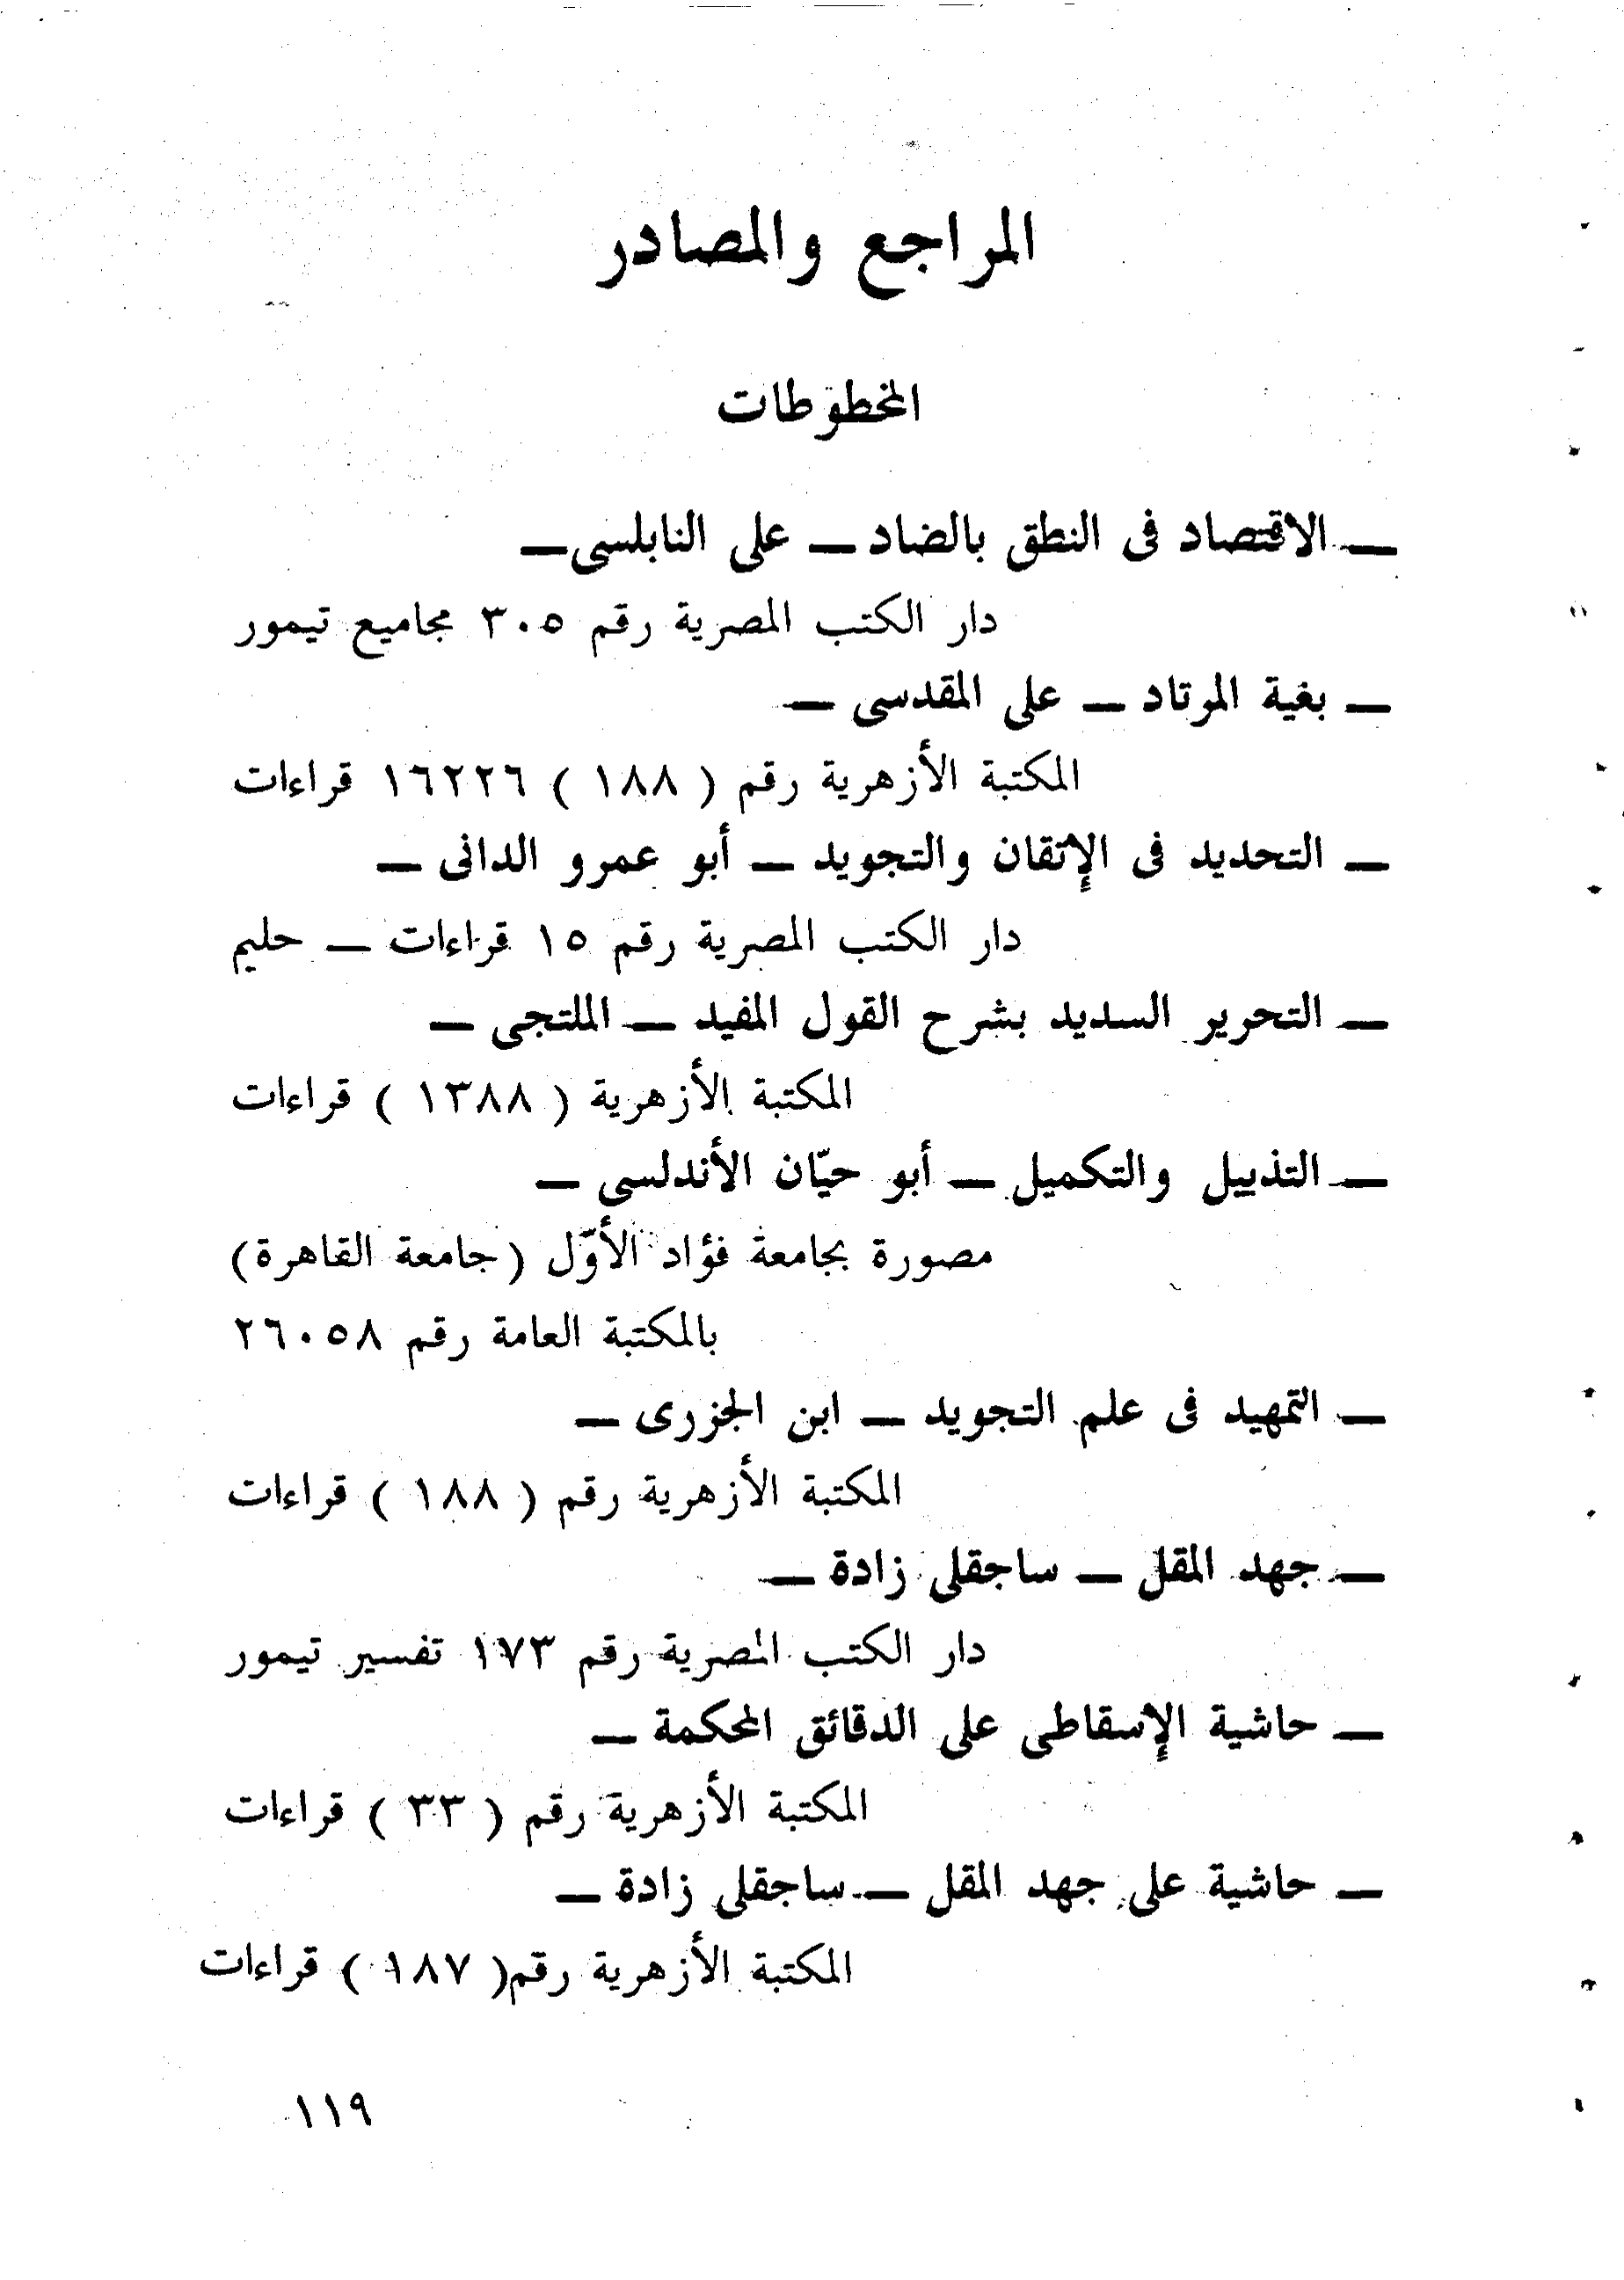 المراجع والمصادر
المخطوطات
ــ الاقتصاد فى النطق بالضاد ــ على النابلسى ــ
دار الكتب المصرية رقم ٣٠٥ مجاميع تيمور
ــ بغية المرتاد ــ على المقدسى ــ
المكتبة الأزهرية رقم ( ١٨٨ ) ١٦٢٢٦ قراءات
ــ التحديد فى الإتقان والتجويد ــ أبو عمرو الدانى ــ
دار الكتب المصرية رقم ١٥ قراءات ــ حليم
ــ التحرير السديد بشرح القول المفيد ــ الملتجى ــ
المكتبة الأزهرية ( ١٣٨٨ ) قراءات
ــ التذييل والتكميل ــ أبو حيّان الأندلسى ــ
مصورة بجامعة فؤاد الأوّل (جامعة القاهرة)
بالمكتبة العامة رقم ٢٦٠٥٨
ــ التمهيد فى علم التجويد ــ ابن الجزرى ــ
المكتبة الأزهرية رقم ( ١٨٨ ) قراءات
ــ جهد المقل ــ ساجقلى زادة ــ
دار الكتب المصرية رقم ١٧٣ تفسير تيمور
ــ حاشية الإسقاطى على الدقائق المحكمة ــ
المكتبة الأزهرية رقم ( ٣٣ ) قراءات
ــ حاشية على جهد المقل ــ ساجقلى زادة ــ
المكتبة الأزهرية رقم( ١٨٧ ) قراءات
١١٩